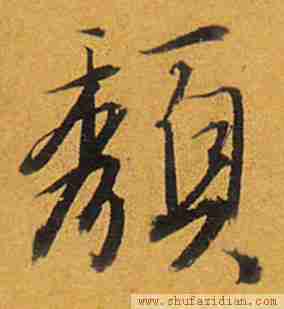 頹
www.shufazidian.com